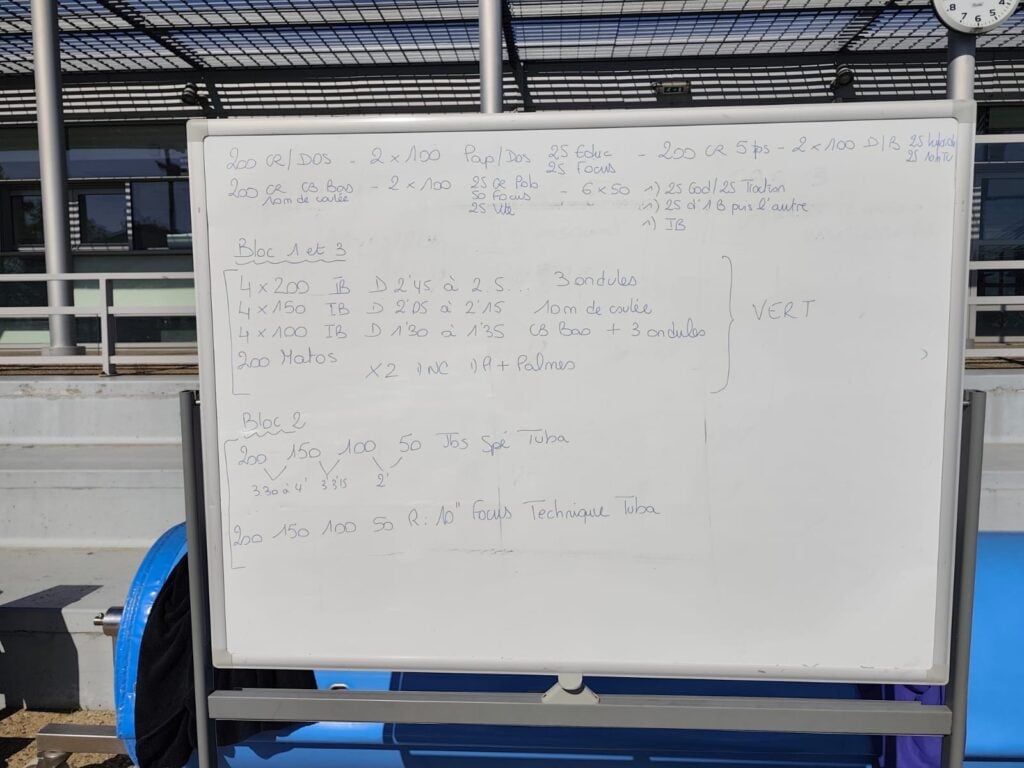 200 CR/DOS - 2 × 100 Pap/Dos 25 Educ - 200 CR 5 ps - 2 × 100 D/B 25
25 Focus 25
200 CR CB Bao - 2 × 100 25 CR Polo - 6 × 50 1) 25 God/25 Traction
10m de coulée 50 Focus 1) 25 d'1 B puis l'autre
25 Vite 1) IB
Bloc 1 et 3
4 × 200 IB D 2'45 à 2.5... 3 ondules
4 × 150 IB D 2'05 à 2'15 10m de coulée
4 × 100 IB D 1'30 à 1'35 CB Bao + 3 ondules
VERT
200 Matos
×2 1) NC 1) P + Palmes
Bloc 2
200 150 100 50 Jbs Spé Tuba
3 30 à 4' 3' 3'15 2'
200 150 100 50 R: 10" Focus Technique Tuba